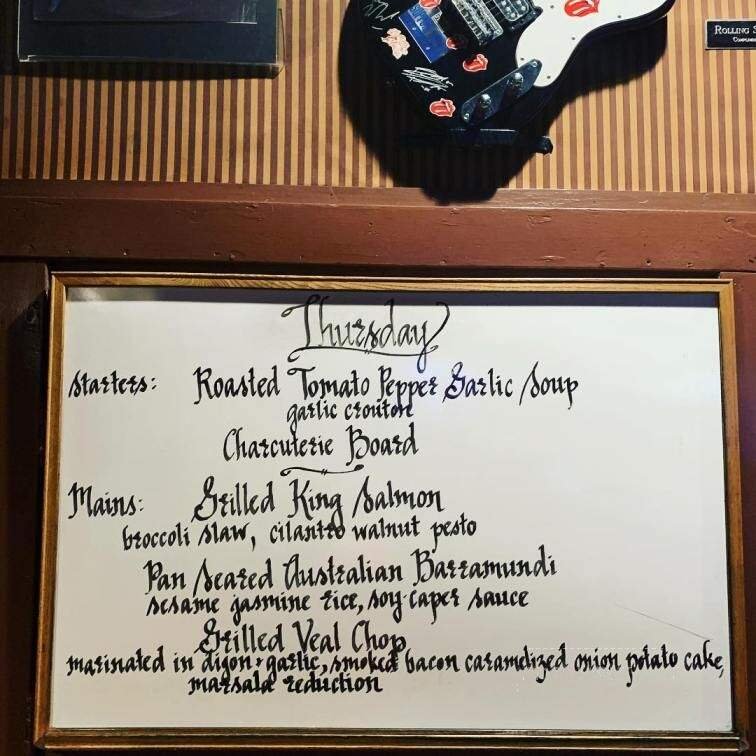 ROLLING
Thursday
Starters: Roasted Tomato Pepper Garlic Soup
garlic crouton
Charcuterie Board
Mains: Grilled King Salmon
broccoli slaw, cilantro walnut pesto
Pan Seared Australian Barramundi
sesame jasmine rice, soy-caper sauce
Grilled Veal Chop
marinated in dijon + garlic, smoked bacon caramelized onion potato cake,
marsala reduction